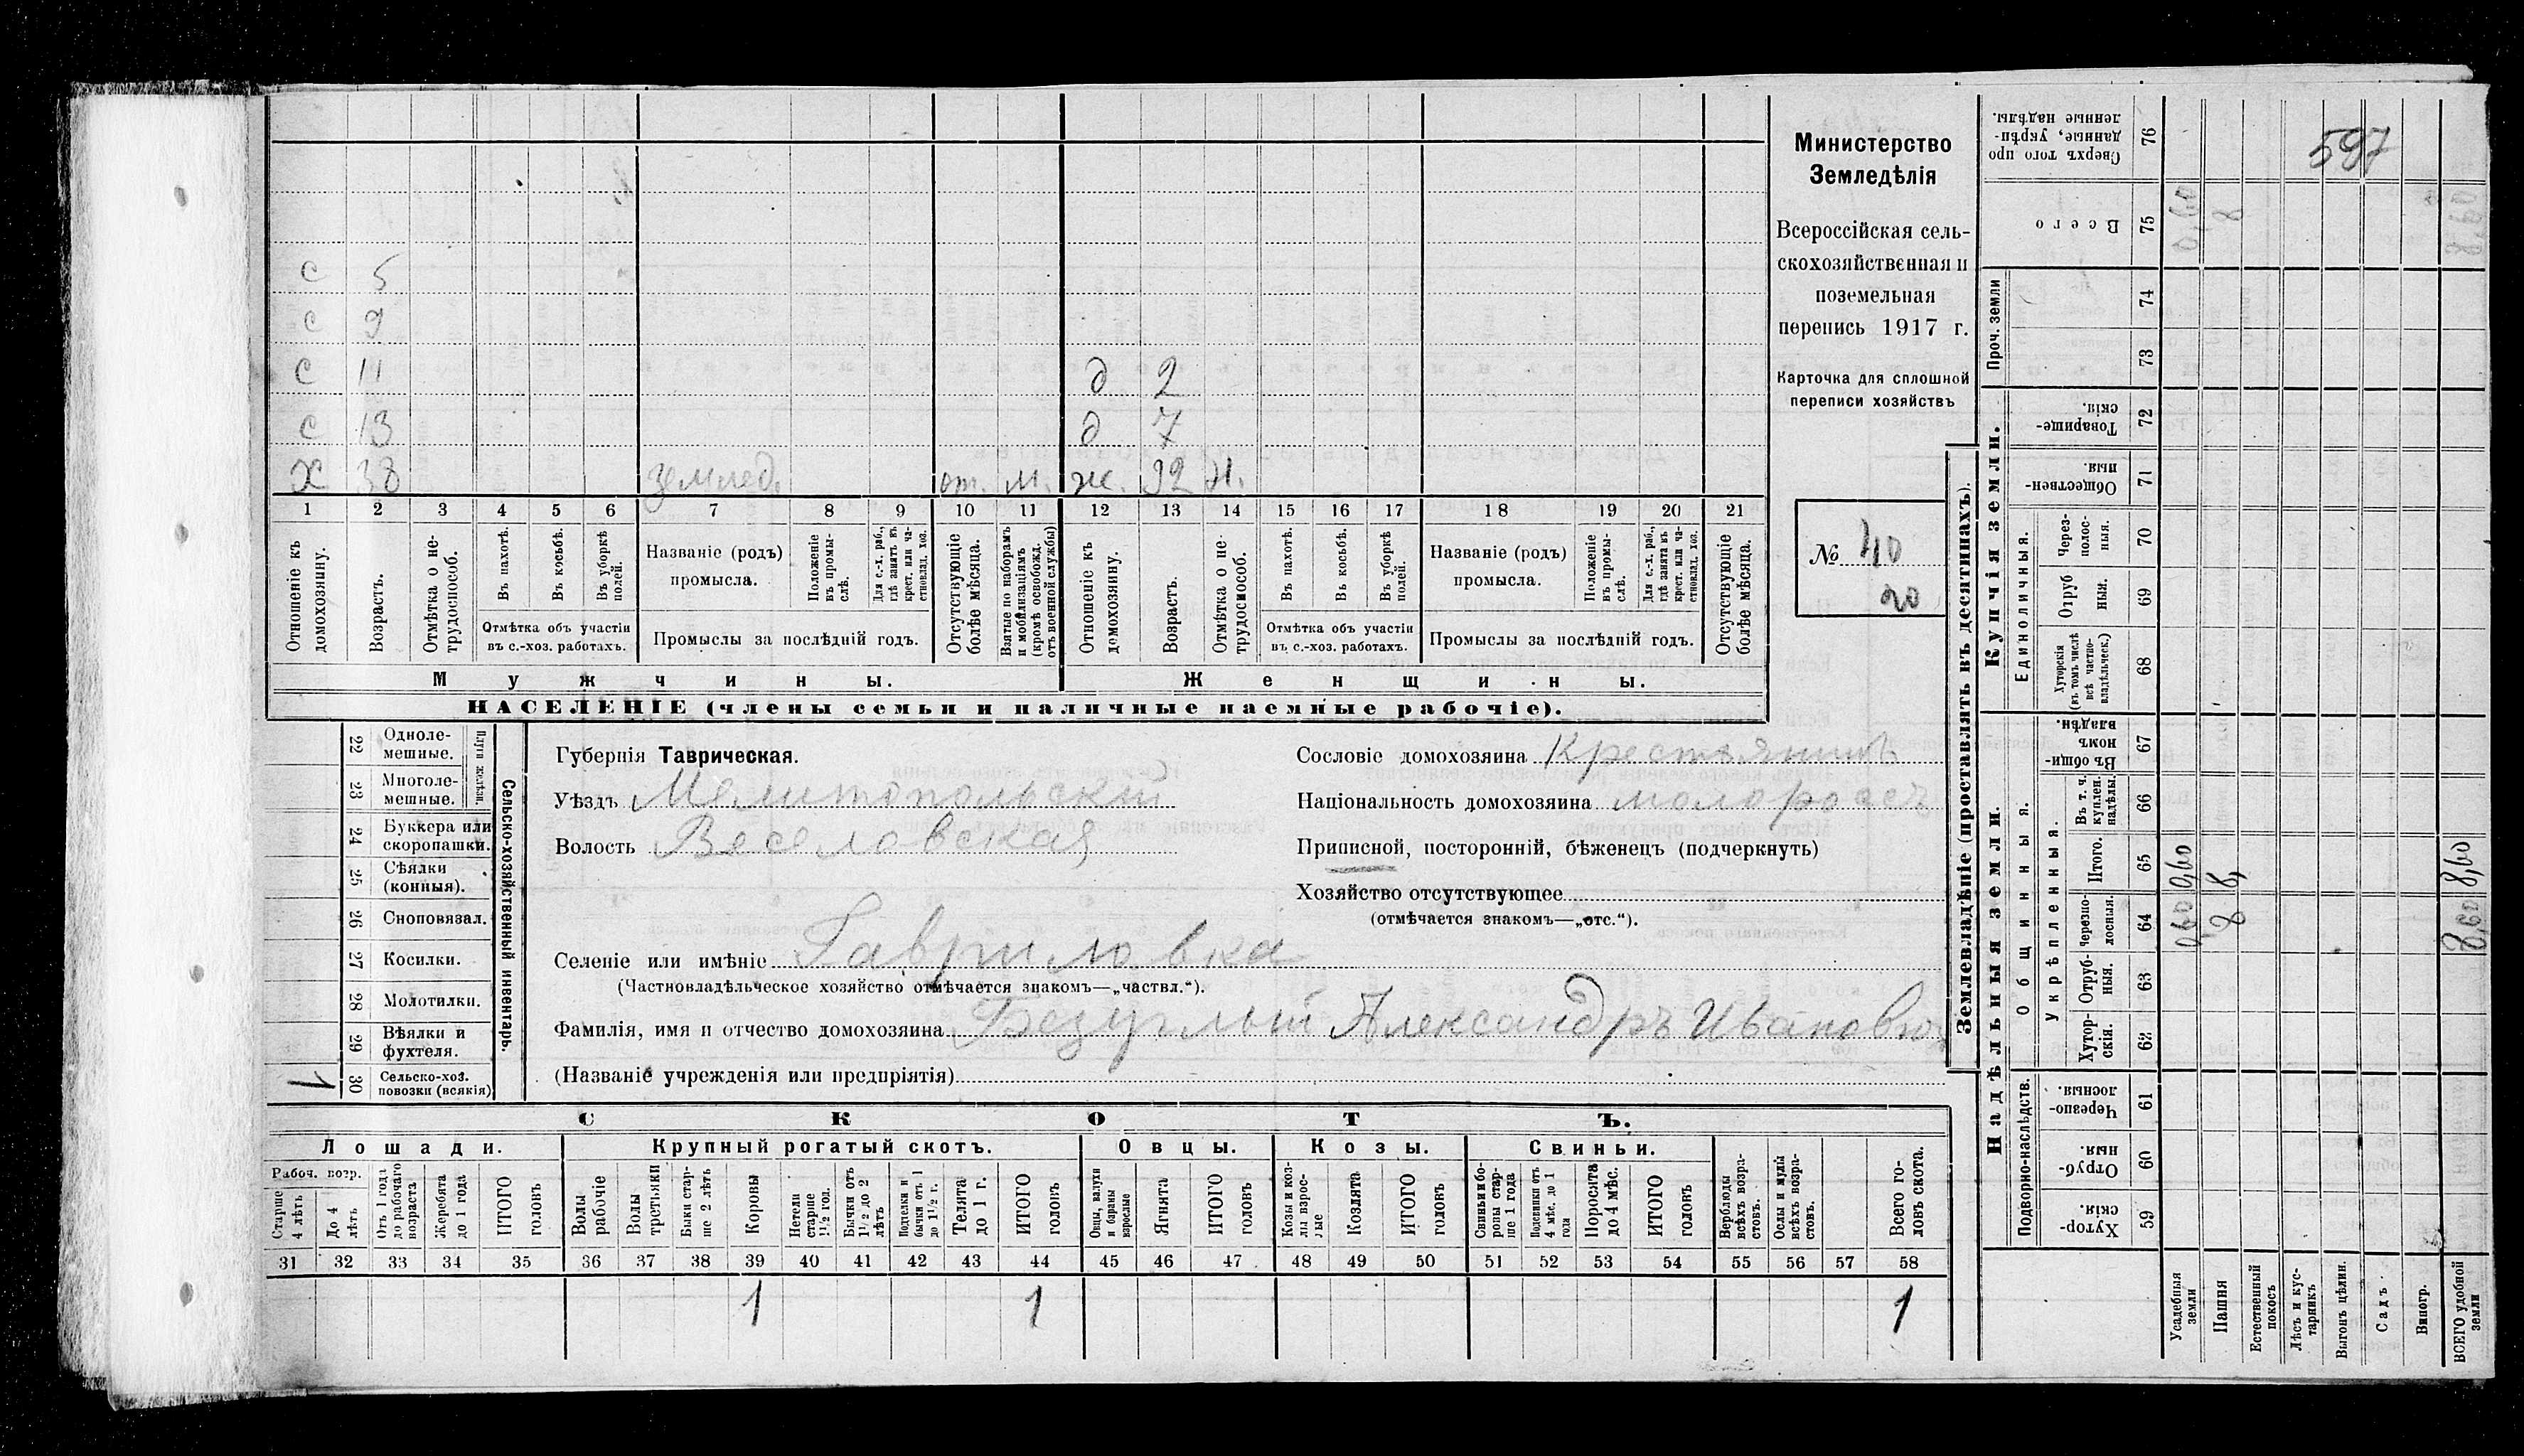 С 5
С 9
С 11 д 2
С 13 д 7
Х 38 землед. от. м. ж. 32 н.
1 2 3 4 5 6 7 8 9 10 11 12 13 14 15 16 17 18 19 20 21
Отношеніе къ домохозяину.
Возрастъ.
Отмѣтка о не-трудоспособ.
Въ пахотѣ.
Въ косьбѣ.
Въ уборкѣ полей.
Отмѣтка объ участіи
въ с.-хоз. работахъ.
Названіе (родъ)
промысла.
Положеніе въ промы-слѣ.
Для с.-х. раб., гдѣ занятъ въ крест. или ча-стновлад. хоз.
Промыслы за послѣдній годъ.
Отсутствующіе болѣе мѣсяца.
Взятые по наборамъ и мобилизаціямъ (кромѣ освобожд. отъ военной службы)
Отношеніе къ домохозяину.
Возрастъ.
Отмѣтка о не-трудоспособ.
Въ пахотѣ.
Въ косьбѣ.
Въ уборкѣ полей.
Отмѣтка объ участіи
въ с.-хоз. работахъ.
Названіе (родъ)
промысла.
Положеніе въ промы-слѣ.
Для с.-х. раб., гдѣ занята въ крест. или ча-стновлад. хоз.
Промыслы за послѣдній годъ.
Отсутствующіе болѣе мѣсяца.
Мужчины. Женщины.
НАСЕЛЕНІЕ (члены семьи и наличные наемные рабочіе).
Министерство
Земледѣлія
Всероссійская сель-
скохозяйственная и
поземельная
перепись 1917 г.
Карточка для сплошной
переписи хозяйствъ
№ 40
20
Сельско-хозяйственный инвентарь.
Плуги желѣзн.
22 Одноле-мешные.
23 Многоле-мешные.
24 Буккера или скоропашки.
25 Сѣялки (конныя).
26 Сноповязал.
27 Косилки.
28 Молотилки.
29 Вѣялки и фухтеля.
30 Сельско-хоз. повозки (всякія) 1
Губернія Таврическая.
Уѣздъ Мелитопольскій
Волость Веселовская
Сословіе домохозяина Крестьянинъ
Національность домохозяина молороссъ
Приписной, посторонній, бѣженецъ (подчеркнуть)
Хозяйство отсутствующее
(отмѣчается знакомъ—„отс.“).
Селеніе или имѣніе Гавриловка
(Частновладѣльческое хозяйство отмѣчается знакомъ—„частвл.“).
Фамилія, имя и отчество домохозяина Безуглый Александръ Иванович
(Названіе учрежденія или предпріятія)
СКОТЪ.
Лошади. Крупный рогатый скотъ. Овцы. Козы. Свиньи.
Рабоч. возр.
Старше 4 лѣтъ
До 4 лѣтъ
Отъ 1 года до рабочаго возраста
Жеребята до 1 года
ИТОГО головъ
Волы рабочіе
Волы третьяки
Быки стар-ше 2 лѣтъ
Коровы
Нетели старше 1½ год.
Бычки отъ 1½ до 2 лѣтъ
Подтелки и бычки отъ 1 до 1½ г.
Телята до 1 г.
ИТОГО головъ
Овцы, валухи и бараны взрослые
Ягнята
ИТОГО головъ
Козы и коз-лы взрос-лые
Козлята
ИТОГО головъ
Свиньи и бо-ровы стар-ше 1 года
Подсвинки отъ 4 мѣс. до 1 года
Поросята до 4 мѣс.
ИТОГО головъ
Верблюды всѣхъ возра-стовъ.
Ослы и мулы всѣхъ возра-стовъ.
Всего го-ловъ скота.
31 32 33 34 35 36 37 38 39 40 41 42 43 44 45 46 47 48 49 50 51 52 53 54 55 56 57 58
1 1 1
Землевладѣніе (проставлять въ десятинахъ).
Купчія земли.
Надѣльныя земли.
597
Сверхъ того про данные, укрѣп-ленные надѣлы. 76
Всего 75 0,60 8 8,60
Проч. земли 74
73
Товарище-скія. 72
Общественныя. 71
Единоличныя.
Через-полос-ныя. 70
Отруб ныя. 69
Хуторскія (въ томъ числѣ всѣ частно-владѣльческ.) 68
Общинныя.
Въ общи-номъ владѣн. 67
Укрѣпленныя.
Въ т. ч. куплен. надѣлы. 66
Итого. 65 0,60 8, 8,60
Черезпо-лосныя. 64 0,60 8 8,60
Отруб-ныя. 63
Хутор-скія. 62
Подворно-наслѣдств.
Черезпо-лосныя. 61
Отруб-ныя. 60
Хутор-скія. 59
Усадебныя земли
Пашня
Естественный покосъ
Лѣсъ и кус-тарникъ
Выгонъ цѣлин.
Садъ
Виногр.
ВСЕГО удобной земли